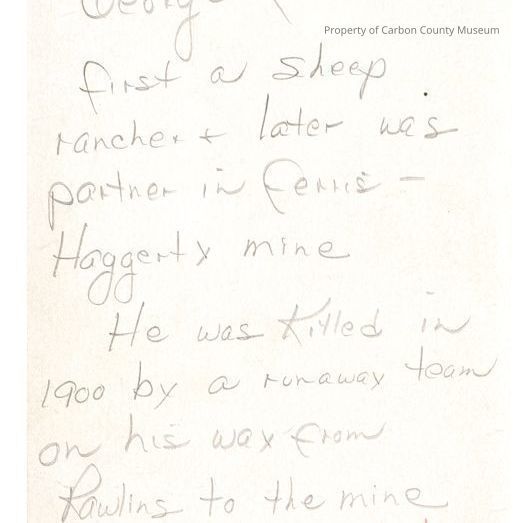 George
Property of Carbon County Museum
first a sheep
rancher + later was
partner in Ferris -
Haggerty mine
He was killed in
1900 by a runaway team
on his way from
Rawlins to the mine